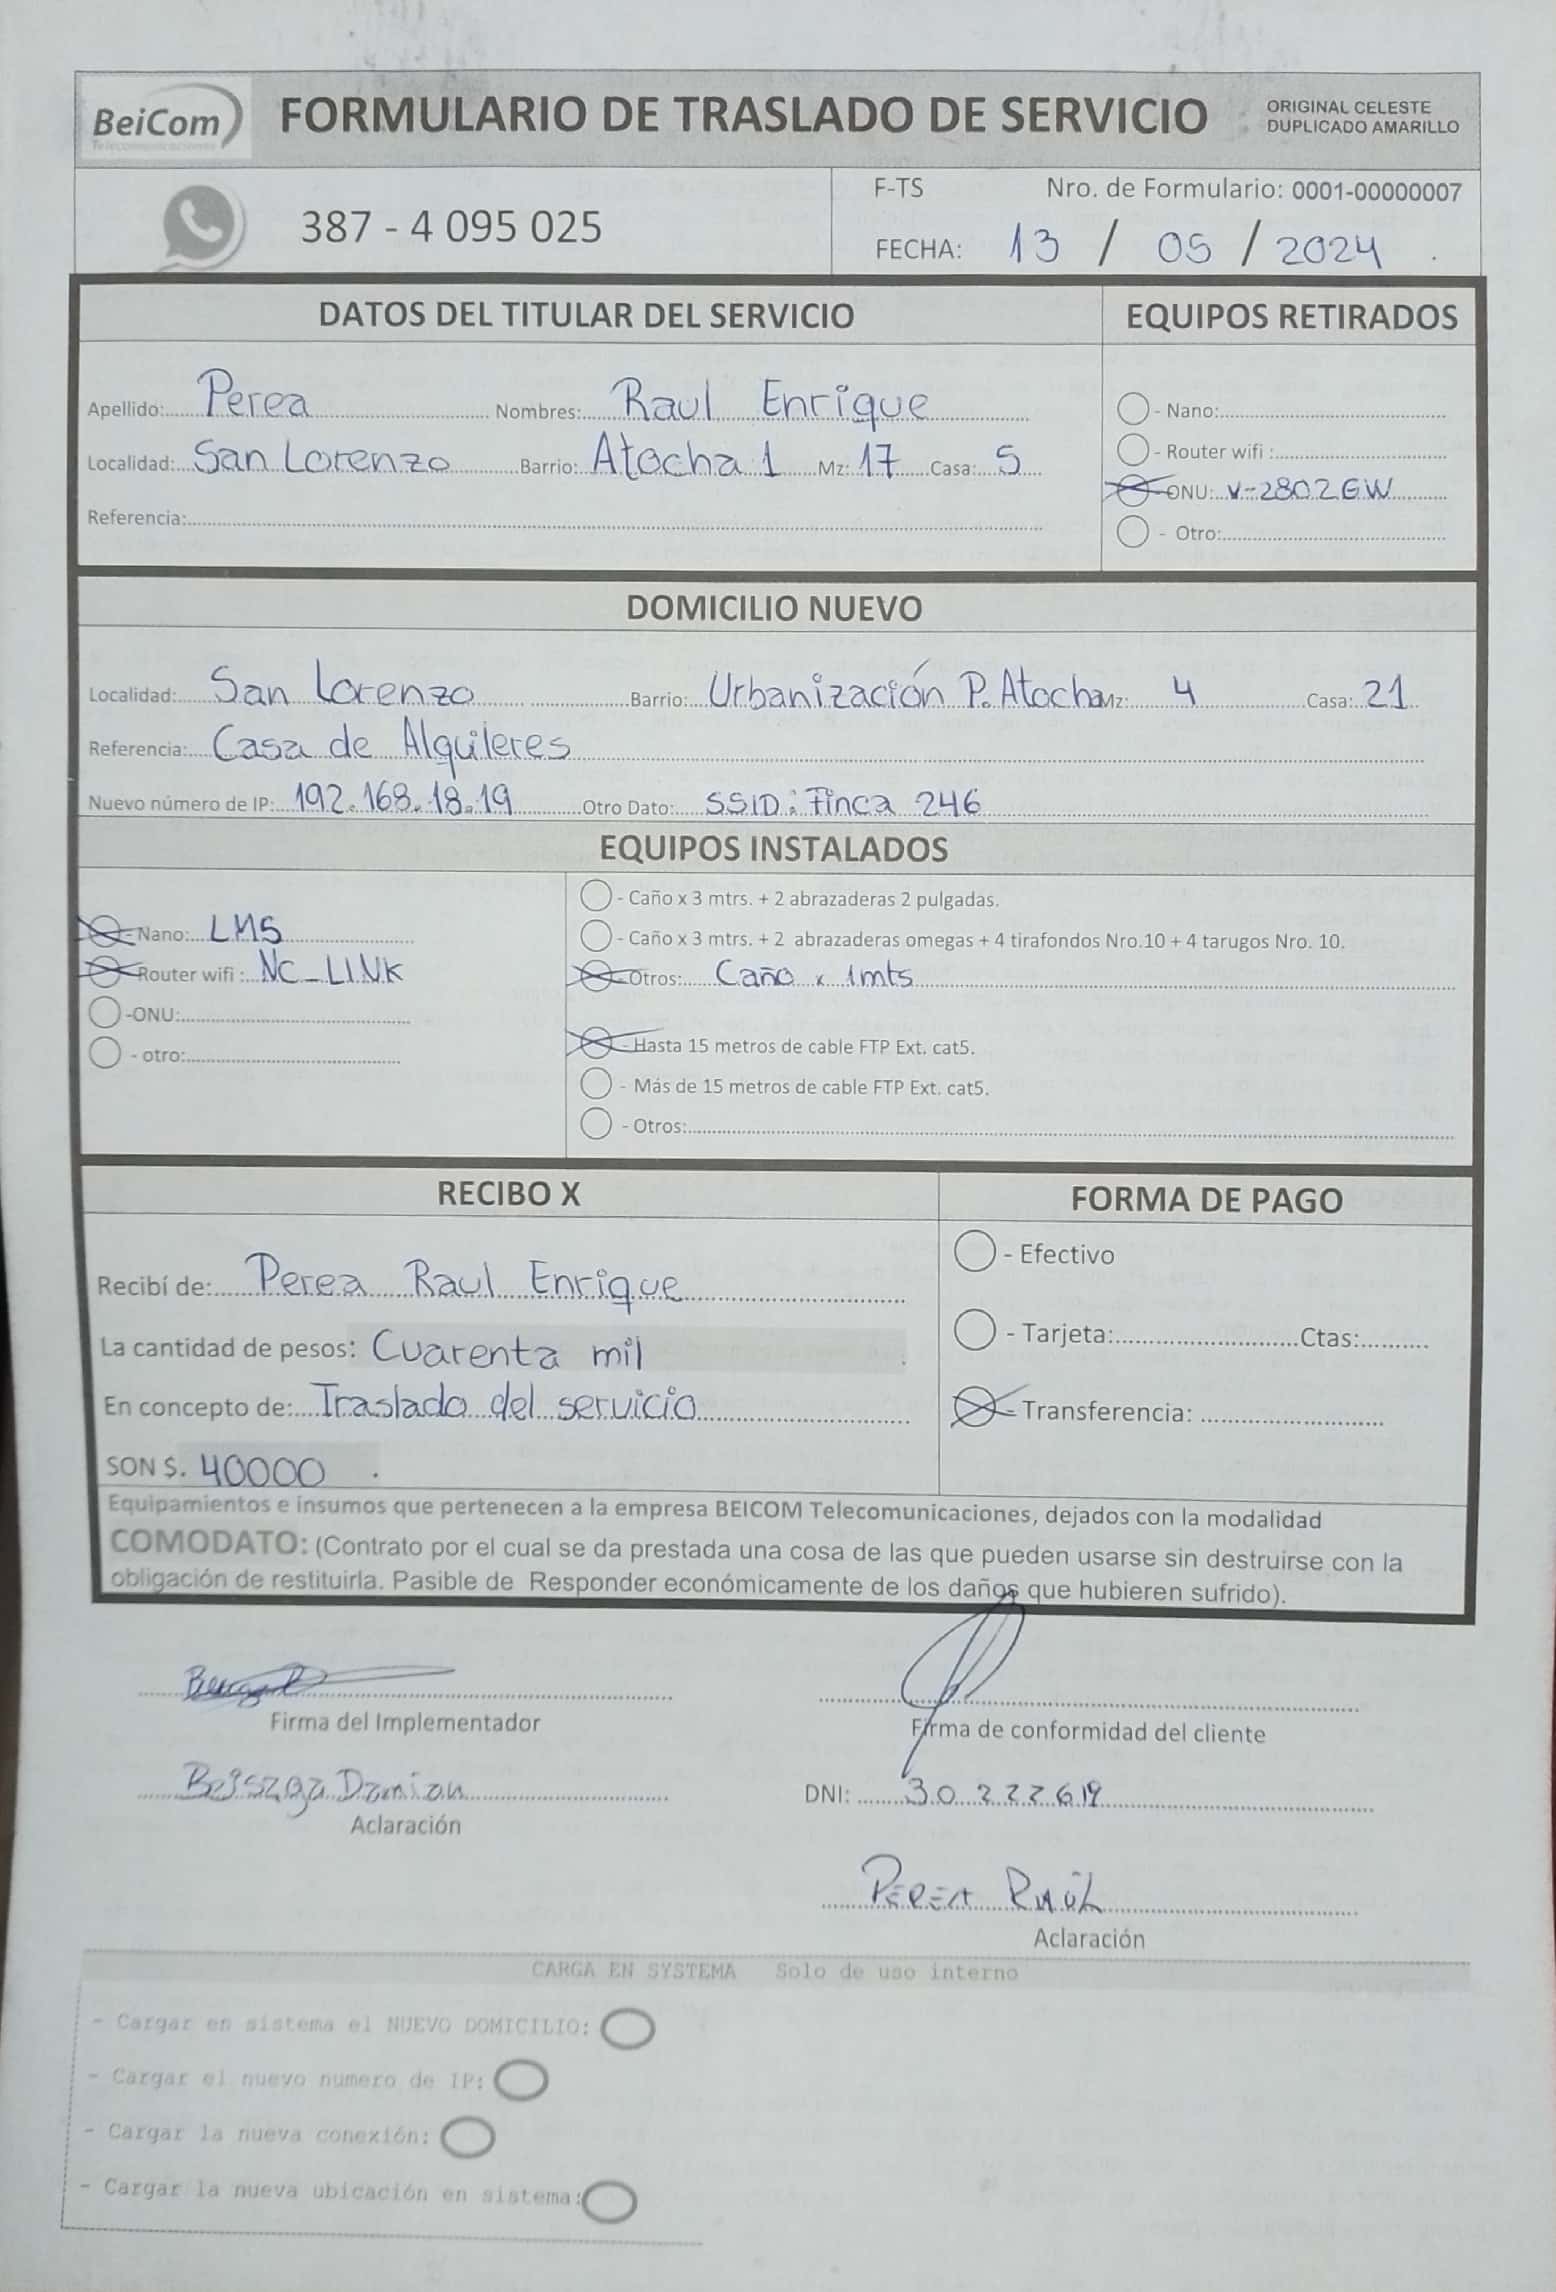 BeiCom
Telecomunicaciones
FORMULARIO DE TRASLADO DE SERVICIO
ORIGINAL CELESTE
DUPLICADO AMARILLO
387 - 4 095 025
F-TS Nro. de Formulario: 0001-00000007
FECHA: 13 / 05 / 2024
DATOS DEL TITULAR DEL SERVICIO
Apellido: Perea Nombres: Raul Enrique
Localidad: San Lorenzo Barrio: Atocha 1 Mz: 17 Casa: 5
Referencia:
EQUIPOS RETIRADOS
- Nano:
- Router wifi :
- ONU: V-2802GW
- Otro:
DOMICILIO NUEVO
Localidad: San Lorenzo Barrio: Urbanización P. Atocha Mz: 4 Casa: 21
Referencia: Casa de Alquileres
Nuevo número de IP: 192.168.18.19 Otro Dato: SSID: Finca 246
EQUIPOS INSTALADOS
- Nano: LM5
- Router wifi : NC_LINK
-ONU:
- otro:
- Caño x 3 mtrs. + 2 abrazaderas 2 pulgadas.
- Caño x 3 mtrs. + 2 abrazaderas omegas + 4 tirafondos Nro.10 + 4 tarugos Nro. 10.
- Otros: Caño x 1mts
- Hasta 15 metros de cable FTP Ext. cat5.
- Más de 15 metros de cable FTP Ext. cat5.
- Otros:
RECIBO X
Recibí de: Perea Raul Enrique
La cantidad de pesos: Cuarenta mil
En concepto de: Traslado del servicio
SON $. 40000
FORMA DE PAGO
- Efectivo
- Tarjeta: Ctas:
- Transferencia:
Equipamientos e insumos que pertenecen a la empresa BEICOM Telecomunicaciones, dejados con la modalidad
COMODATO: (Contrato por el cual se da prestada una cosa de las que pueden usarse sin destruirse con la
obligación de restituirla. Pasible de Responder económicamente de los daños que hubieren sufrido).
Firma del Implementador
Damian
Aclaración
Firma de conformidad del cliente
DNI: 30 222 619
PEREA RAÚL
Aclaración
CARGA EN SYSTEMA Solo de uso interno
- Cargar en sistema el NUEVO DOMICILIO:
- Cargar el nuevo numero de IP:
- Cargar la nueva conexión:
- Cargar la nueva ubicación en sistema: